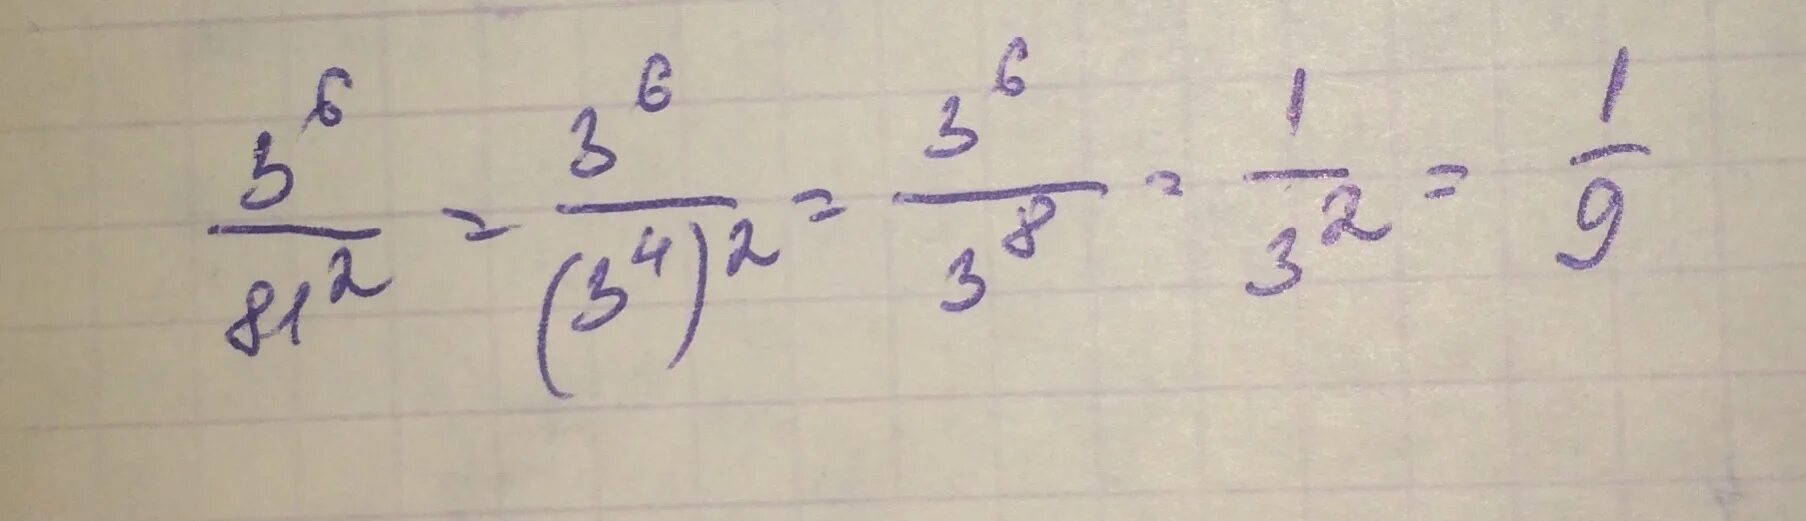 3^6/81^2 = 3^6/(3^4)^2 = 3^6/3^8 = 1/3^2 = 1/9